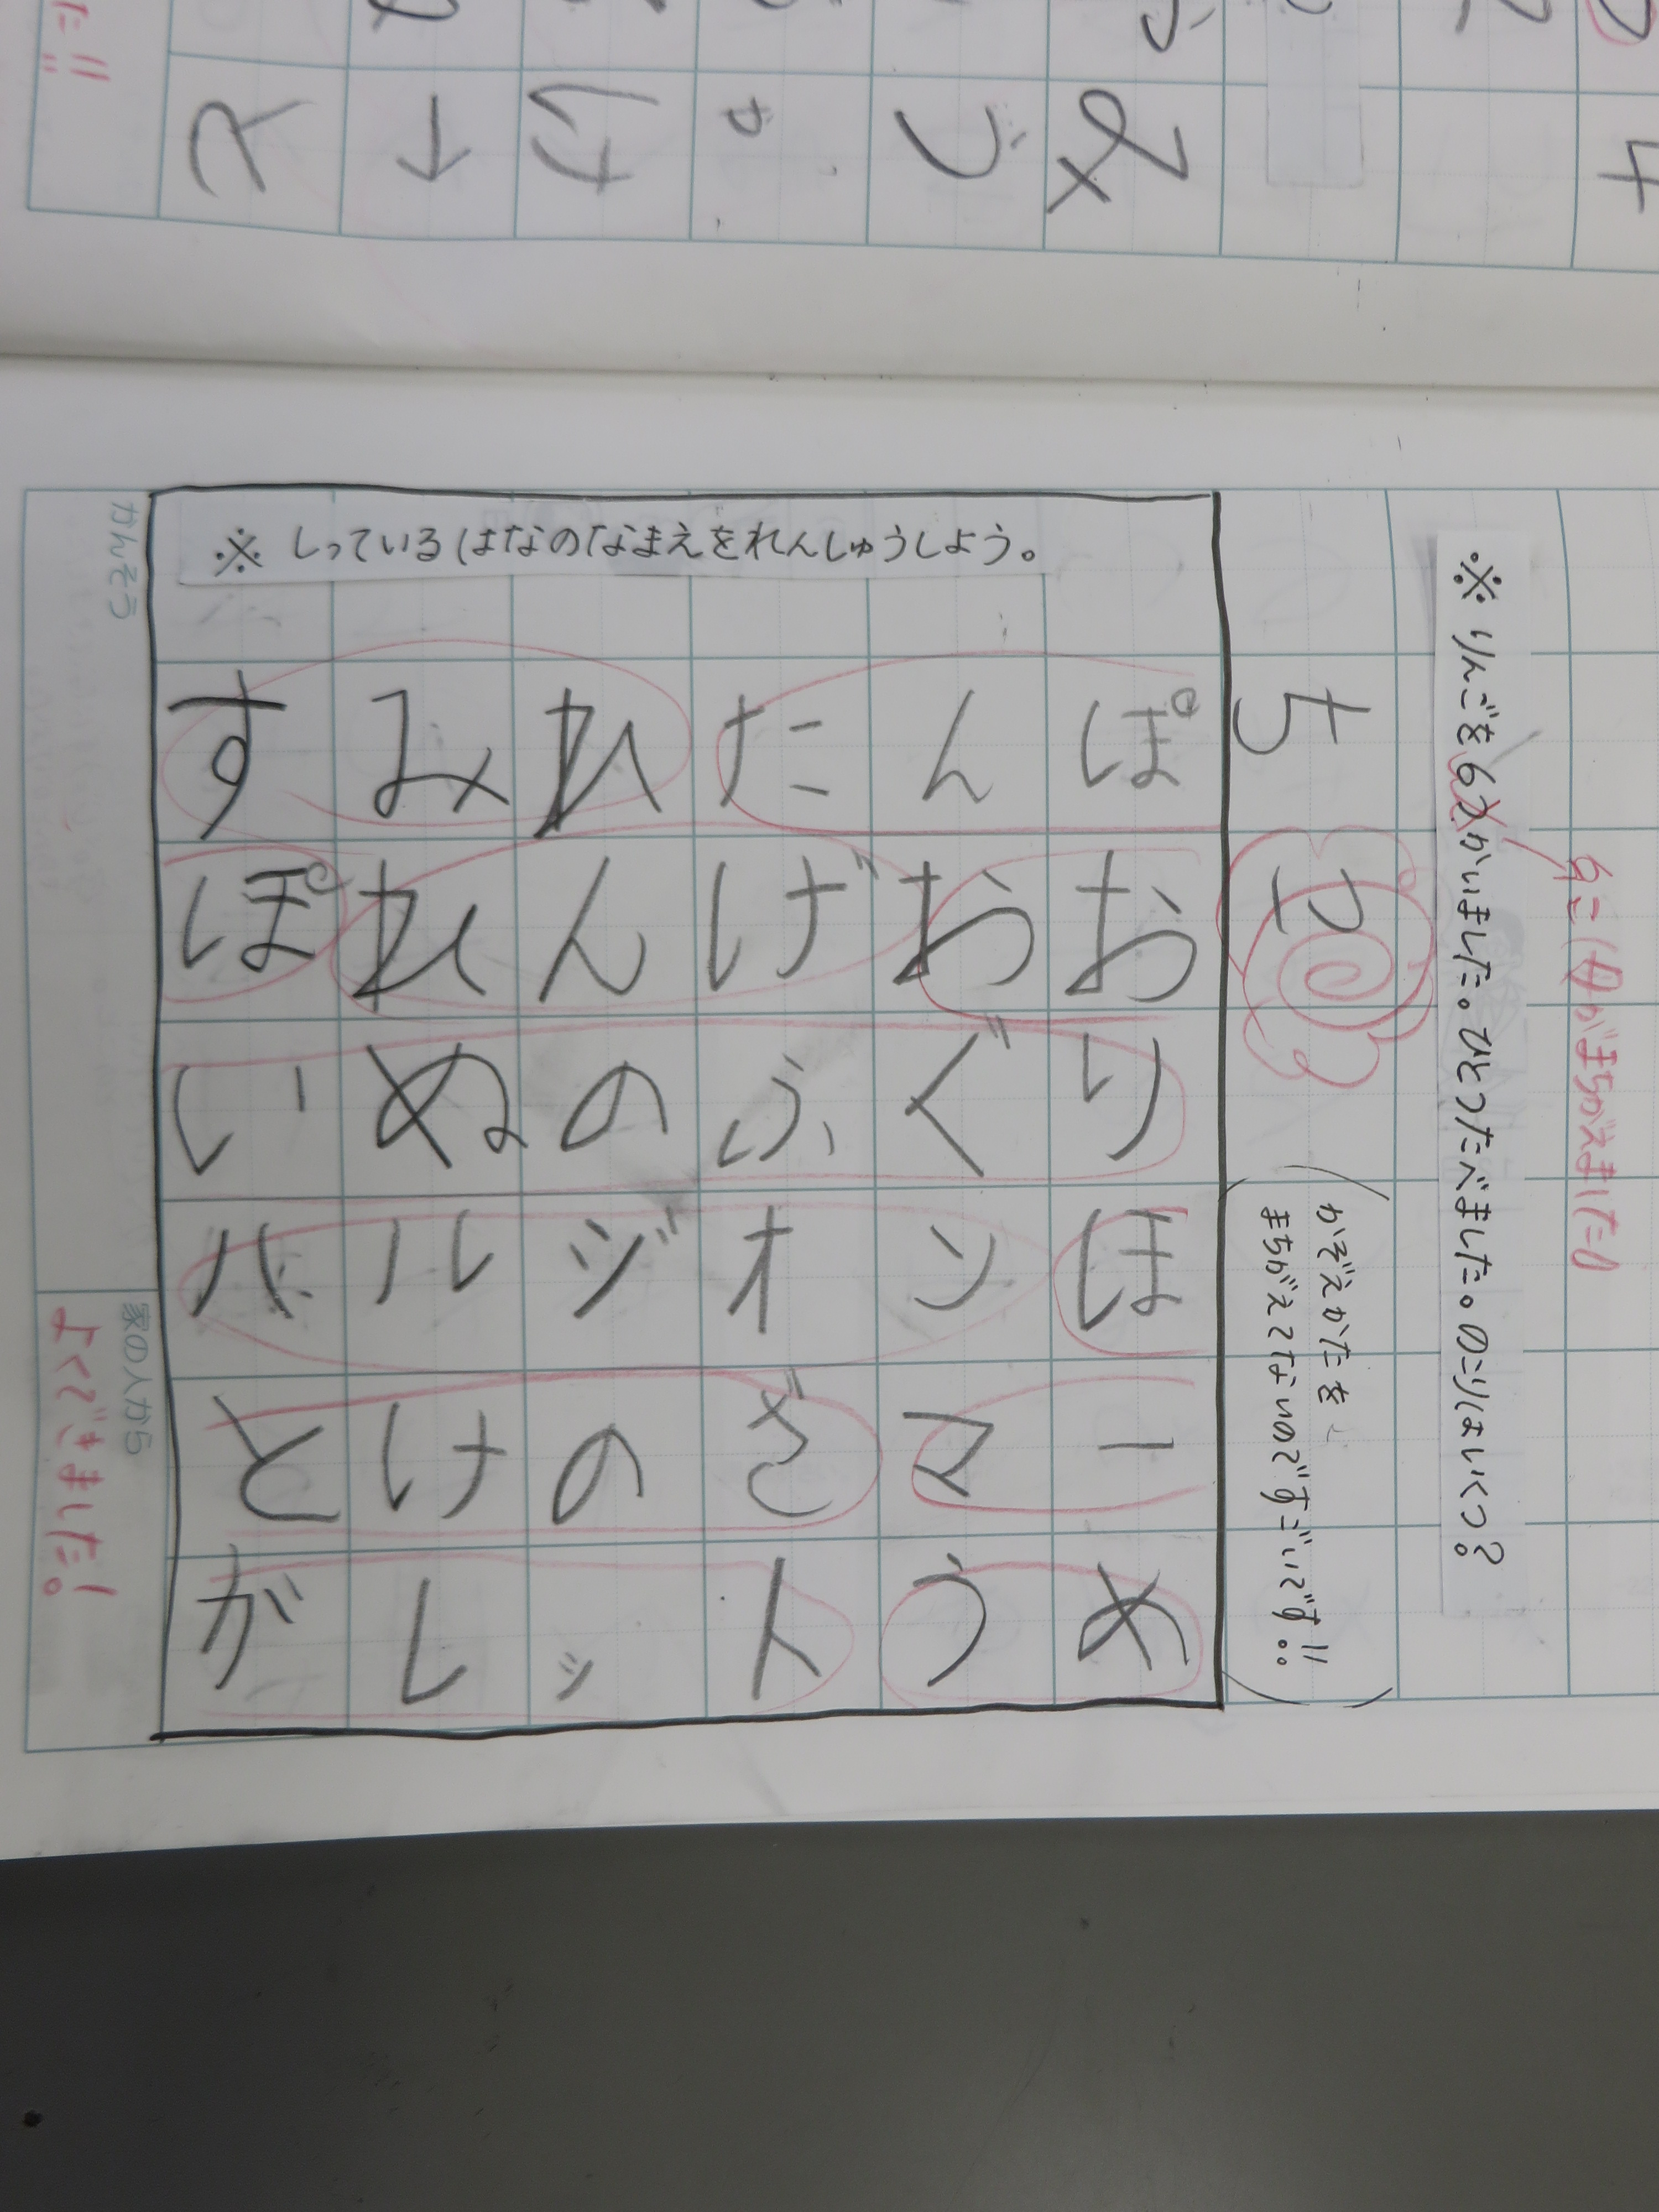 ※りんごを6つかいました。ひとつたべました。のこりはいくつ？
6こ(母がまちがえました)
5こ
(かぞえかたを
まちがえてないのですごいです!!)
※しっているはなのなまえをれんしゅうしよう。
すみれたんぽ
ぽれんげおお
いぬのふぐり
ハルジオンほ
とけのざマー
がレットうめ
かんそう
家の人から
よくできました!